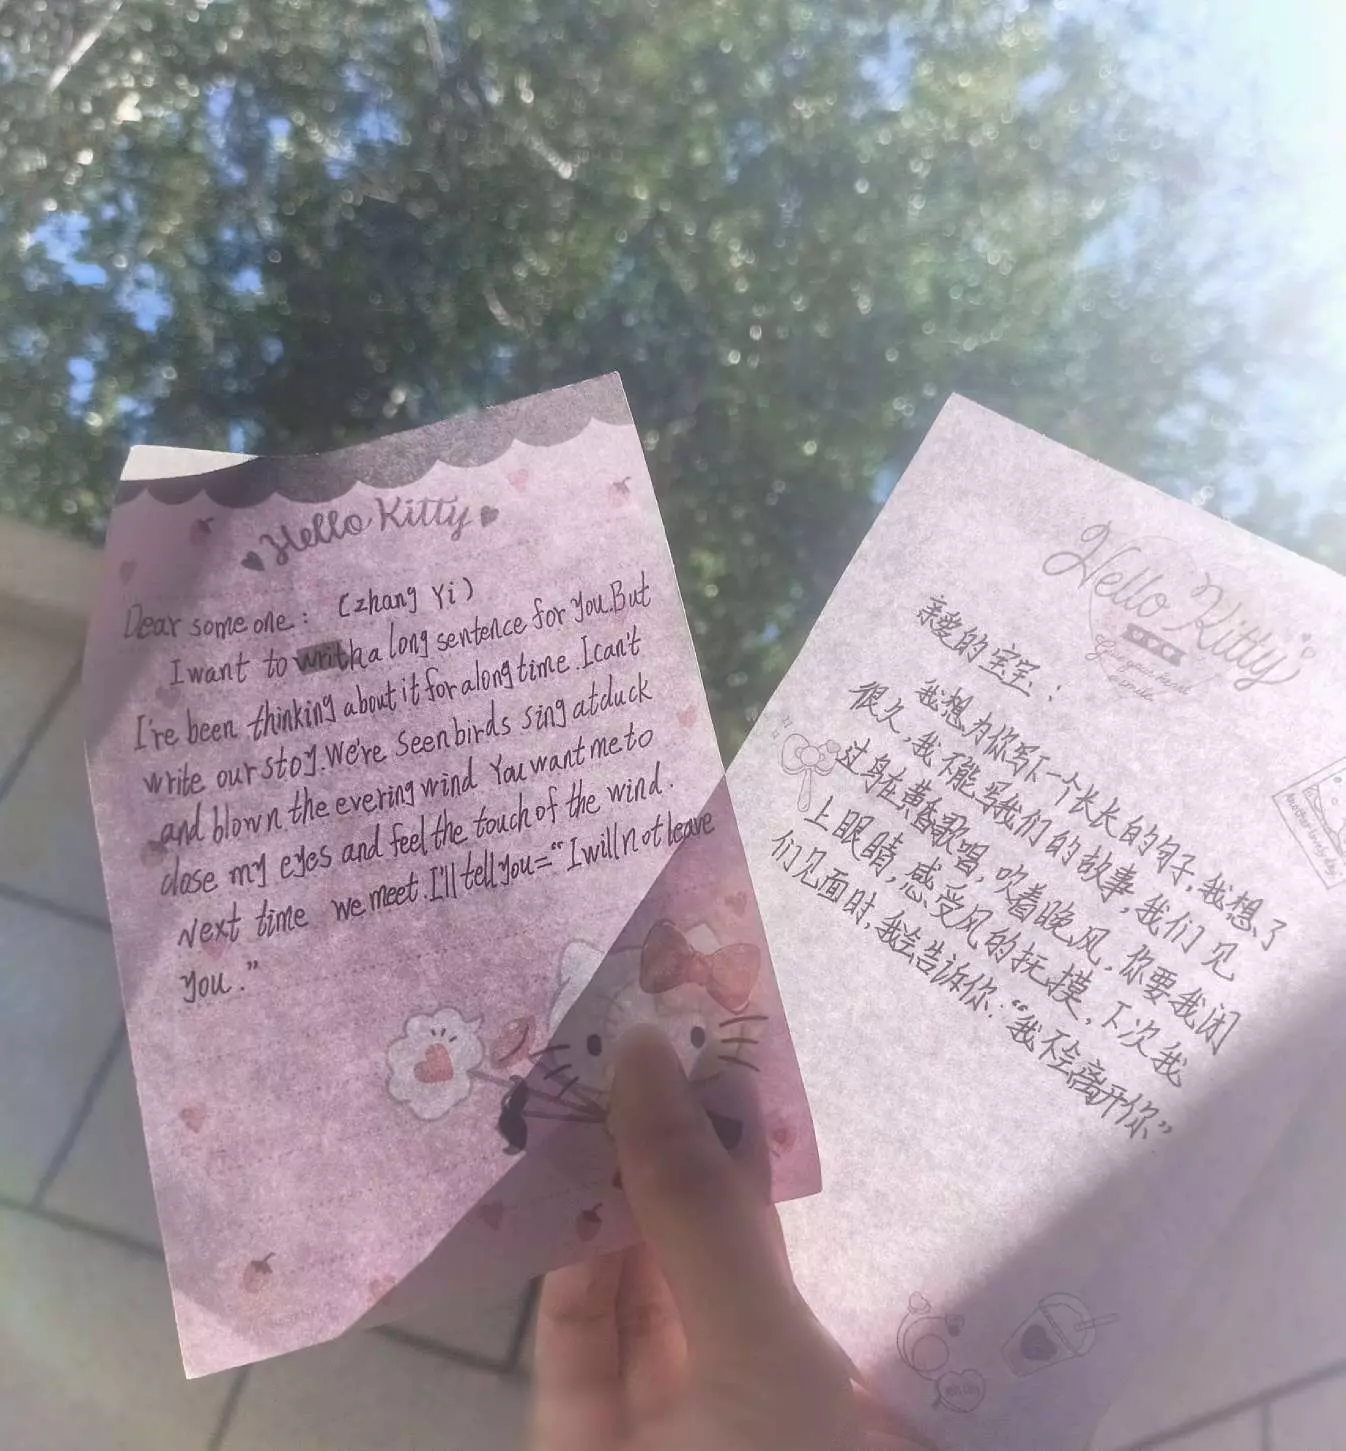 Hello Kitty
Dear someone: (zhang Yi)
I want to writh a long sentence for you. But
I're been thinking about it for along time. I can't
write our stoy. We're seen birds sing at duck
and blown the evering wind You want me to
close my eyes and feel the touch of the wind.
Next time we meet. I'll tell you="I will not leave
you."
Hello Kitty
smile
亲爱的宝宝:
我想为你写下一个长长的句子,我想了
很久,我不能写我们的故事,我们见
过鸟在黄昏歌唱,吹着晚风,你要我闭
上眼睛,感受风的抚摸,下次我
们见面时,我会告诉你:“我不会离开你”